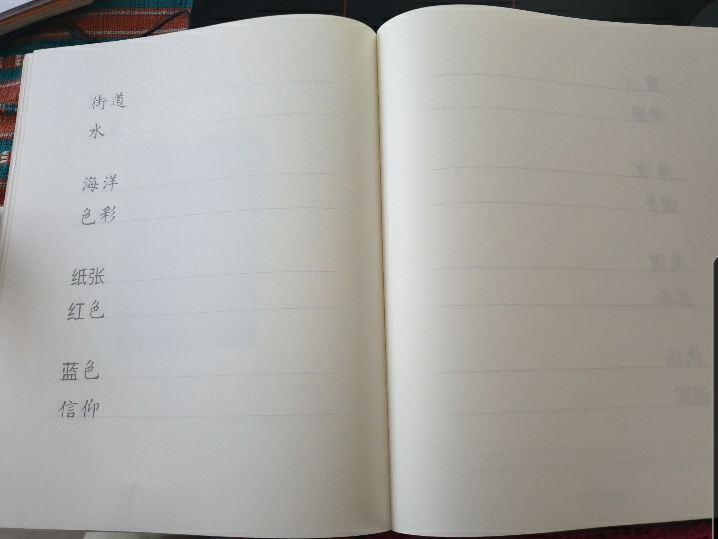 街道
水
海洋
色彩
纸张
红色
蓝色
信仰